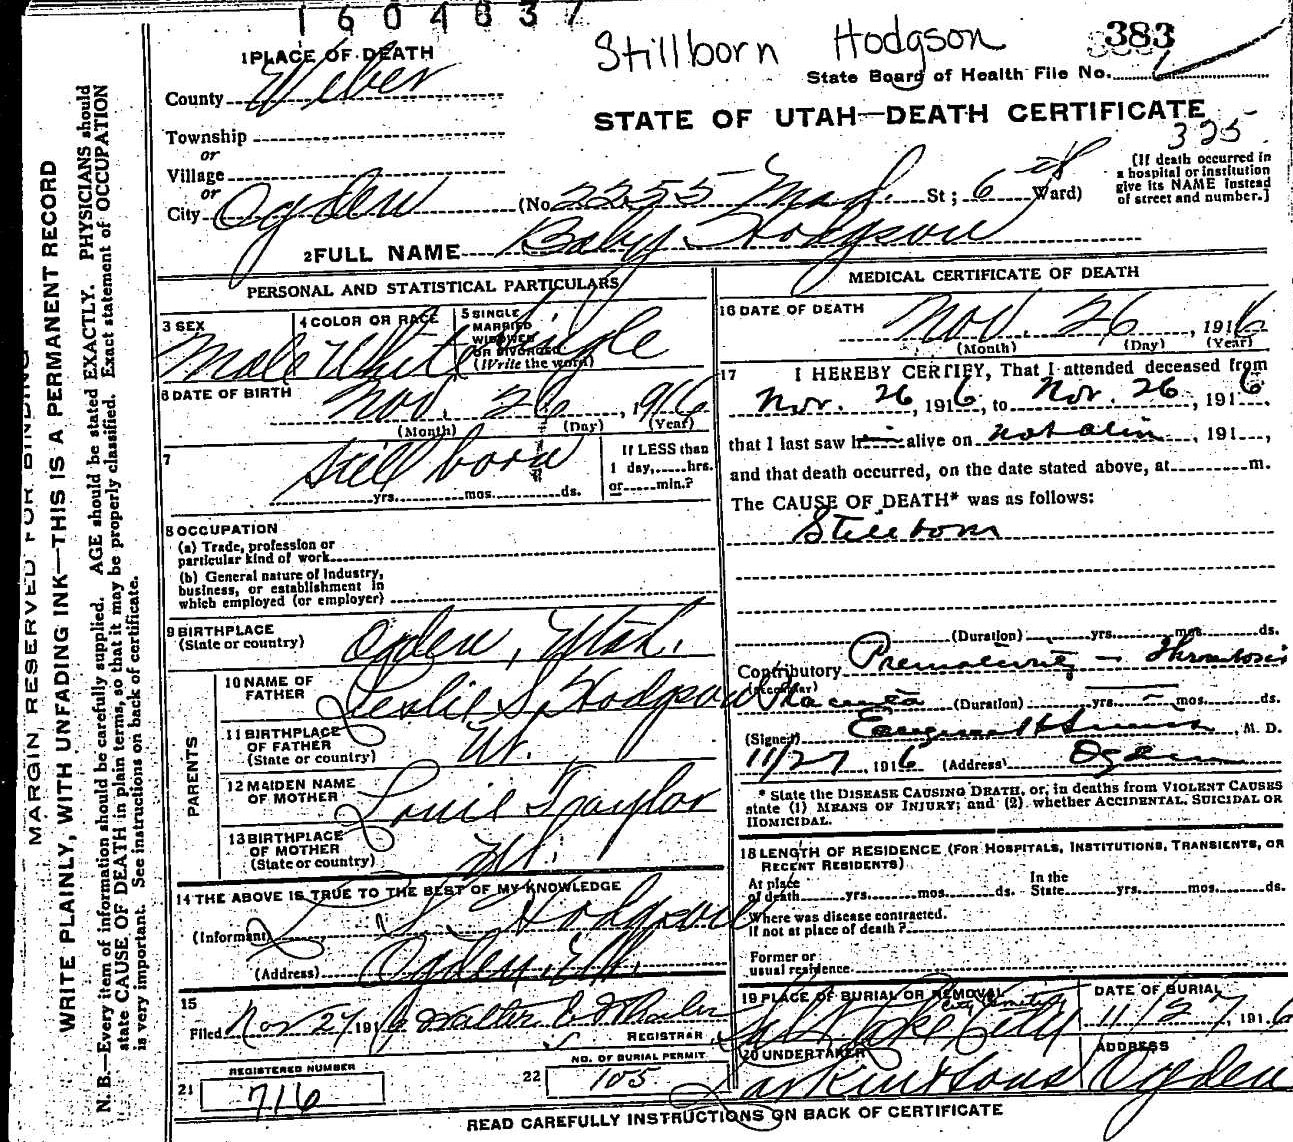 1604837
Stillborn Hodgson
383
State Board of Health File No.
STATE OF UTAH—DEATH CERTIFICATE
325
1 PLACE OF DEATH
County Weber
Township
or
Village
or
City Ogden (No. 2255 Mad. St; 6th Ward)
(If death occurred in
a hospital or institution
give its NAME instead
of street and number.)
2 FULL NAME Baby Hodgson
PERSONAL AND STATISTICAL PARTICULARS
3 SEX
Male
4 COLOR OR RACE
White
5 SINGLE
MARRIED
WIDOWED
OR DIVORCED
(Write the word)
Single
6 DATE OF BIRTH
Nov. 26, 1916
(Month) (Day) (Year)
7
Still born
yrs. mos. ds.
If LESS than
1 day, hrs.
or min.?
8 OCCUPATION
(a) Trade, profession or
particular kind of work
(b) General nature of Industry,
business, or establishment in
which employed (or employer)
9 BIRTHPLACE
(State or country)
Ogden, Utah.
PARENTS
10 NAME OF
FATHER
Leslie S. Hodgson
11 BIRTHPLACE
OF FATHER
(State or country)
Ut.
12 MAIDEN NAME
OF MOTHER
Louie Traylor
13 BIRTHPLACE
OF MOTHER
(State or country)
14 THE ABOVE IS TRUE TO THE BEST OF MY KNOWLEDGE
(Informant) L. S. Hodgson
(Address) Ogden Ut.
15
Filed Nov 27, 1916 Walter
REGISTRAR
21
REGISTERED NUMBER
716
22
NO. OF BURIAL PERMIT
105
MEDICAL CERTIFICATE OF DEATH
16 DATE OF DEATH
Nov. 26, 1916
(Month) (Day) (Year)
17 I HEREBY CERTIFY, That I attended deceased from
Nov. 26, 1916, to Nov. 26, 1916,
that I last saw him alive on not alive, 191,
and that death occurred, on the date stated above, at m.
The CAUSE OF DEATH* was as follows:
Stillborn
(Duration) yrs. mos. ds.
Contributory Prematurity — Thrombosis
(Secondary) Placenta (Duration) yrs. mos. ds.
(Signed) , M. D.
11/27, 1916 (Address) Ogden
* State the DISEASE CAUSING DEATH, or, in deaths from VIOLENT CAUSES
state (1) MEANS OF INJURY; and (2) whether ACCIDENTAL, SUICIDAL OR
HOMICIDAL.
18 LENGTH OF RESIDENCE (FOR HOSPITALS, INSTITUTIONS, TRANSIENTS, OR
RECENT RESIDENTS)
At place
of death yrs. mos. ds.
In the
State yrs. mos. ds.
Where was disease contracted.
If not at place of death?
Former or
usual residence
19 PLACE OF BURIAL OR REMOVAL
City Cemetery
Salt Lake City
DATE OF BURIAL
11/27, 1916
20 UNDERTAKER
Larkin & Sons
ADDRESS
Ogden
READ CAREFULLY INSTRUCTIONS ON BACK OF CERTIFICATE
MARGIN RESERVED FOR BINDING
WRITE PLAINLY, WITH UNFADING INK—THIS IS A PERMANENT RECORD
N. B.—Every item of information should be carefully supplied. AGE should be stated EXACTLY. PHYSICIANS should
state CAUSE OF DEATH in plain terms, so that it may be properly classified. Exact statement of OCCUPATION
is very important. See instructions on back of certificate.